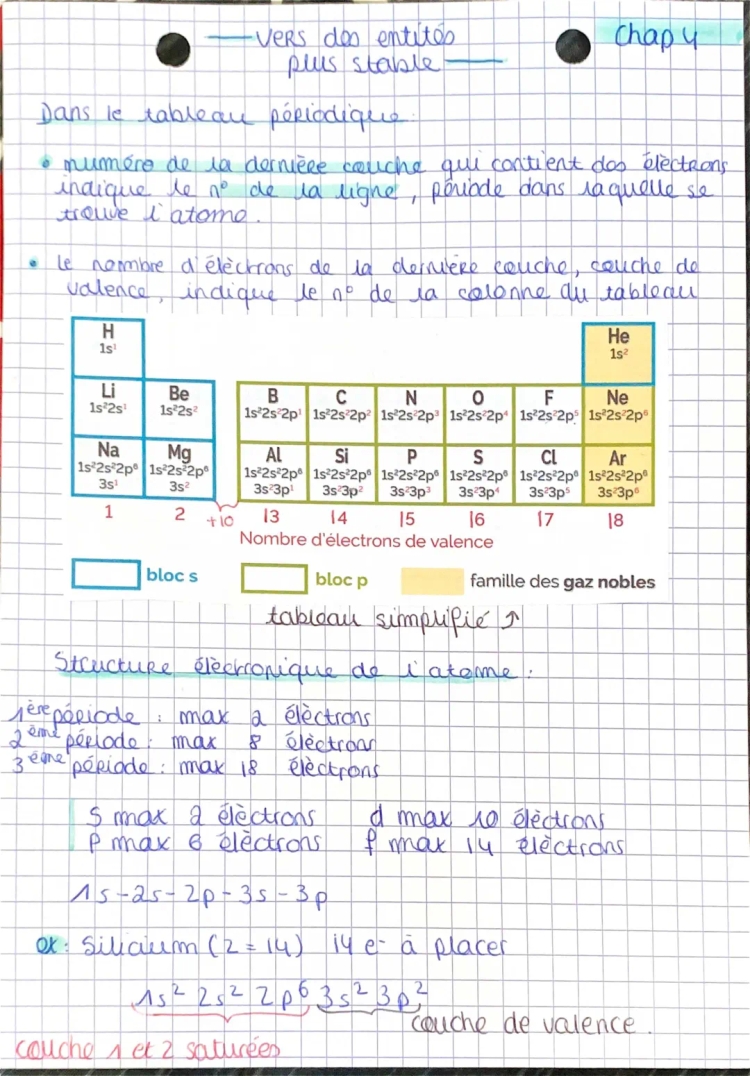 vers des entités
plus stable
Chap 4
Dans le tableau périodique
• numéro de la dernière couche qui contient des élèctrons
indique le n° de la ligne, période dans laquelle se
trouve l'atome.
• le nombre d'élèctrons de la dernière couche, couche de
valence, indique le n° de la colonne du tableau
H He
1s¹ 1s²
Li Be B C N O F Ne
1s²2s¹ 1s²2s² 1s²2s²2p¹ 1s²2s²2p² 1s²2s²2p³ 1s²2s²2p⁴ 1s²2s²2p⁵ 1s²2s²2p⁶
Na Mg Al Si P S Cl Ar
1s²2s²2p⁶ 1s²2s²2p⁶ 1s²2s²2p⁶ 1s²2s²2p⁶ 1s²2s²2p⁶ 1s²2s²2p⁶ 1s²2s²2p⁶ 1s²2s²2p⁶
3s¹ 3s² 3s²3p¹ 3s²3p² 3s²3p³ 3s²3p⁴ 3s²3p⁵ 3s²3p⁶
1 2 +10 13 14 15 16 17 18
Nombre d'électrons de valence
bloc s bloc p famille des gaz nobles
tableau simplifié ↗
Structure élèctronique de l'atome :
1ère période : max 2 élèctrons
2ème période : max 8 élèctrons
3ème période : max 18 élèctrons
s max 2 élèctrons d max 10 élèctrons
p max 6 élèctrons f max 14 élèctrons
1s-2s-2p-3s-3p
ex : Silicium (Z = 14) 14 e- à placer
1s² 2s² 2p⁶ 3s² 3p²
couche de valence.
couche 1 et 2 saturées